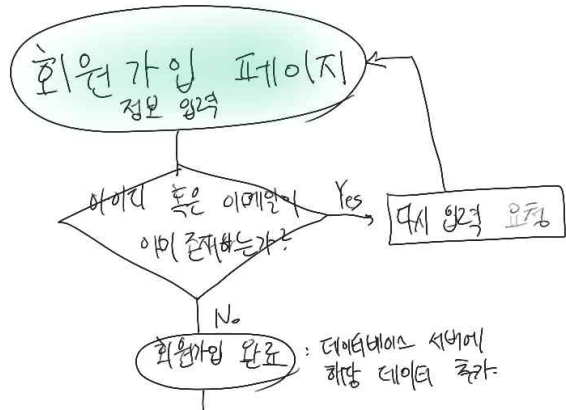 회원가입 페이지
정보 입력
아이디 혹은 이메일이
이미 존재하는가?
Yes
다시 입력 요청
No
회원가입 완료
: 데이터베이스 서버에
해당 데이터 추가